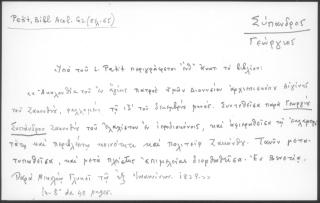 Petit, Bibl. Acol. G2 (σελ. 65)
Σύπανδρος
Γεώργιος
Ὑπὸ τοῦ L. Petit περιγράφεται ὑπ' αὐτὸ τὸ βιβλίον:
«Ἀκολουθία τοῦ ἐν ἁγίοις πατρὸς ἡμῶν Διονυσίου ἀρχιεπισκόπου Αἰγίνης
τοῦ Ζακυνθίου, ψαλλομένη τῇ ιζ' τοῦ Δεκεμβρίου μηνός. Συντεθεῖσα παρὰ Γεωργίου
Συπάνδρου Ζακυνθίου τοῦ ἐλαχίστου ἐν ἱεροδιακόνοις, καὶ ἀφιερωθεῖσα τῇ
καὶ πολιτείᾳ Ζακύνθου. Τανῦν μετα-
τυπωθεῖσα, καὶ μετὰ πλείστης ἐπιμελείας διορθωθεῖσα. Ἐν Βενετίᾳ,
Παρὰ Μιχαὴλ Γλυκεῖ τῷ ἐξ Ἰωαννίνων. 1829.»
8° de 40 pages.